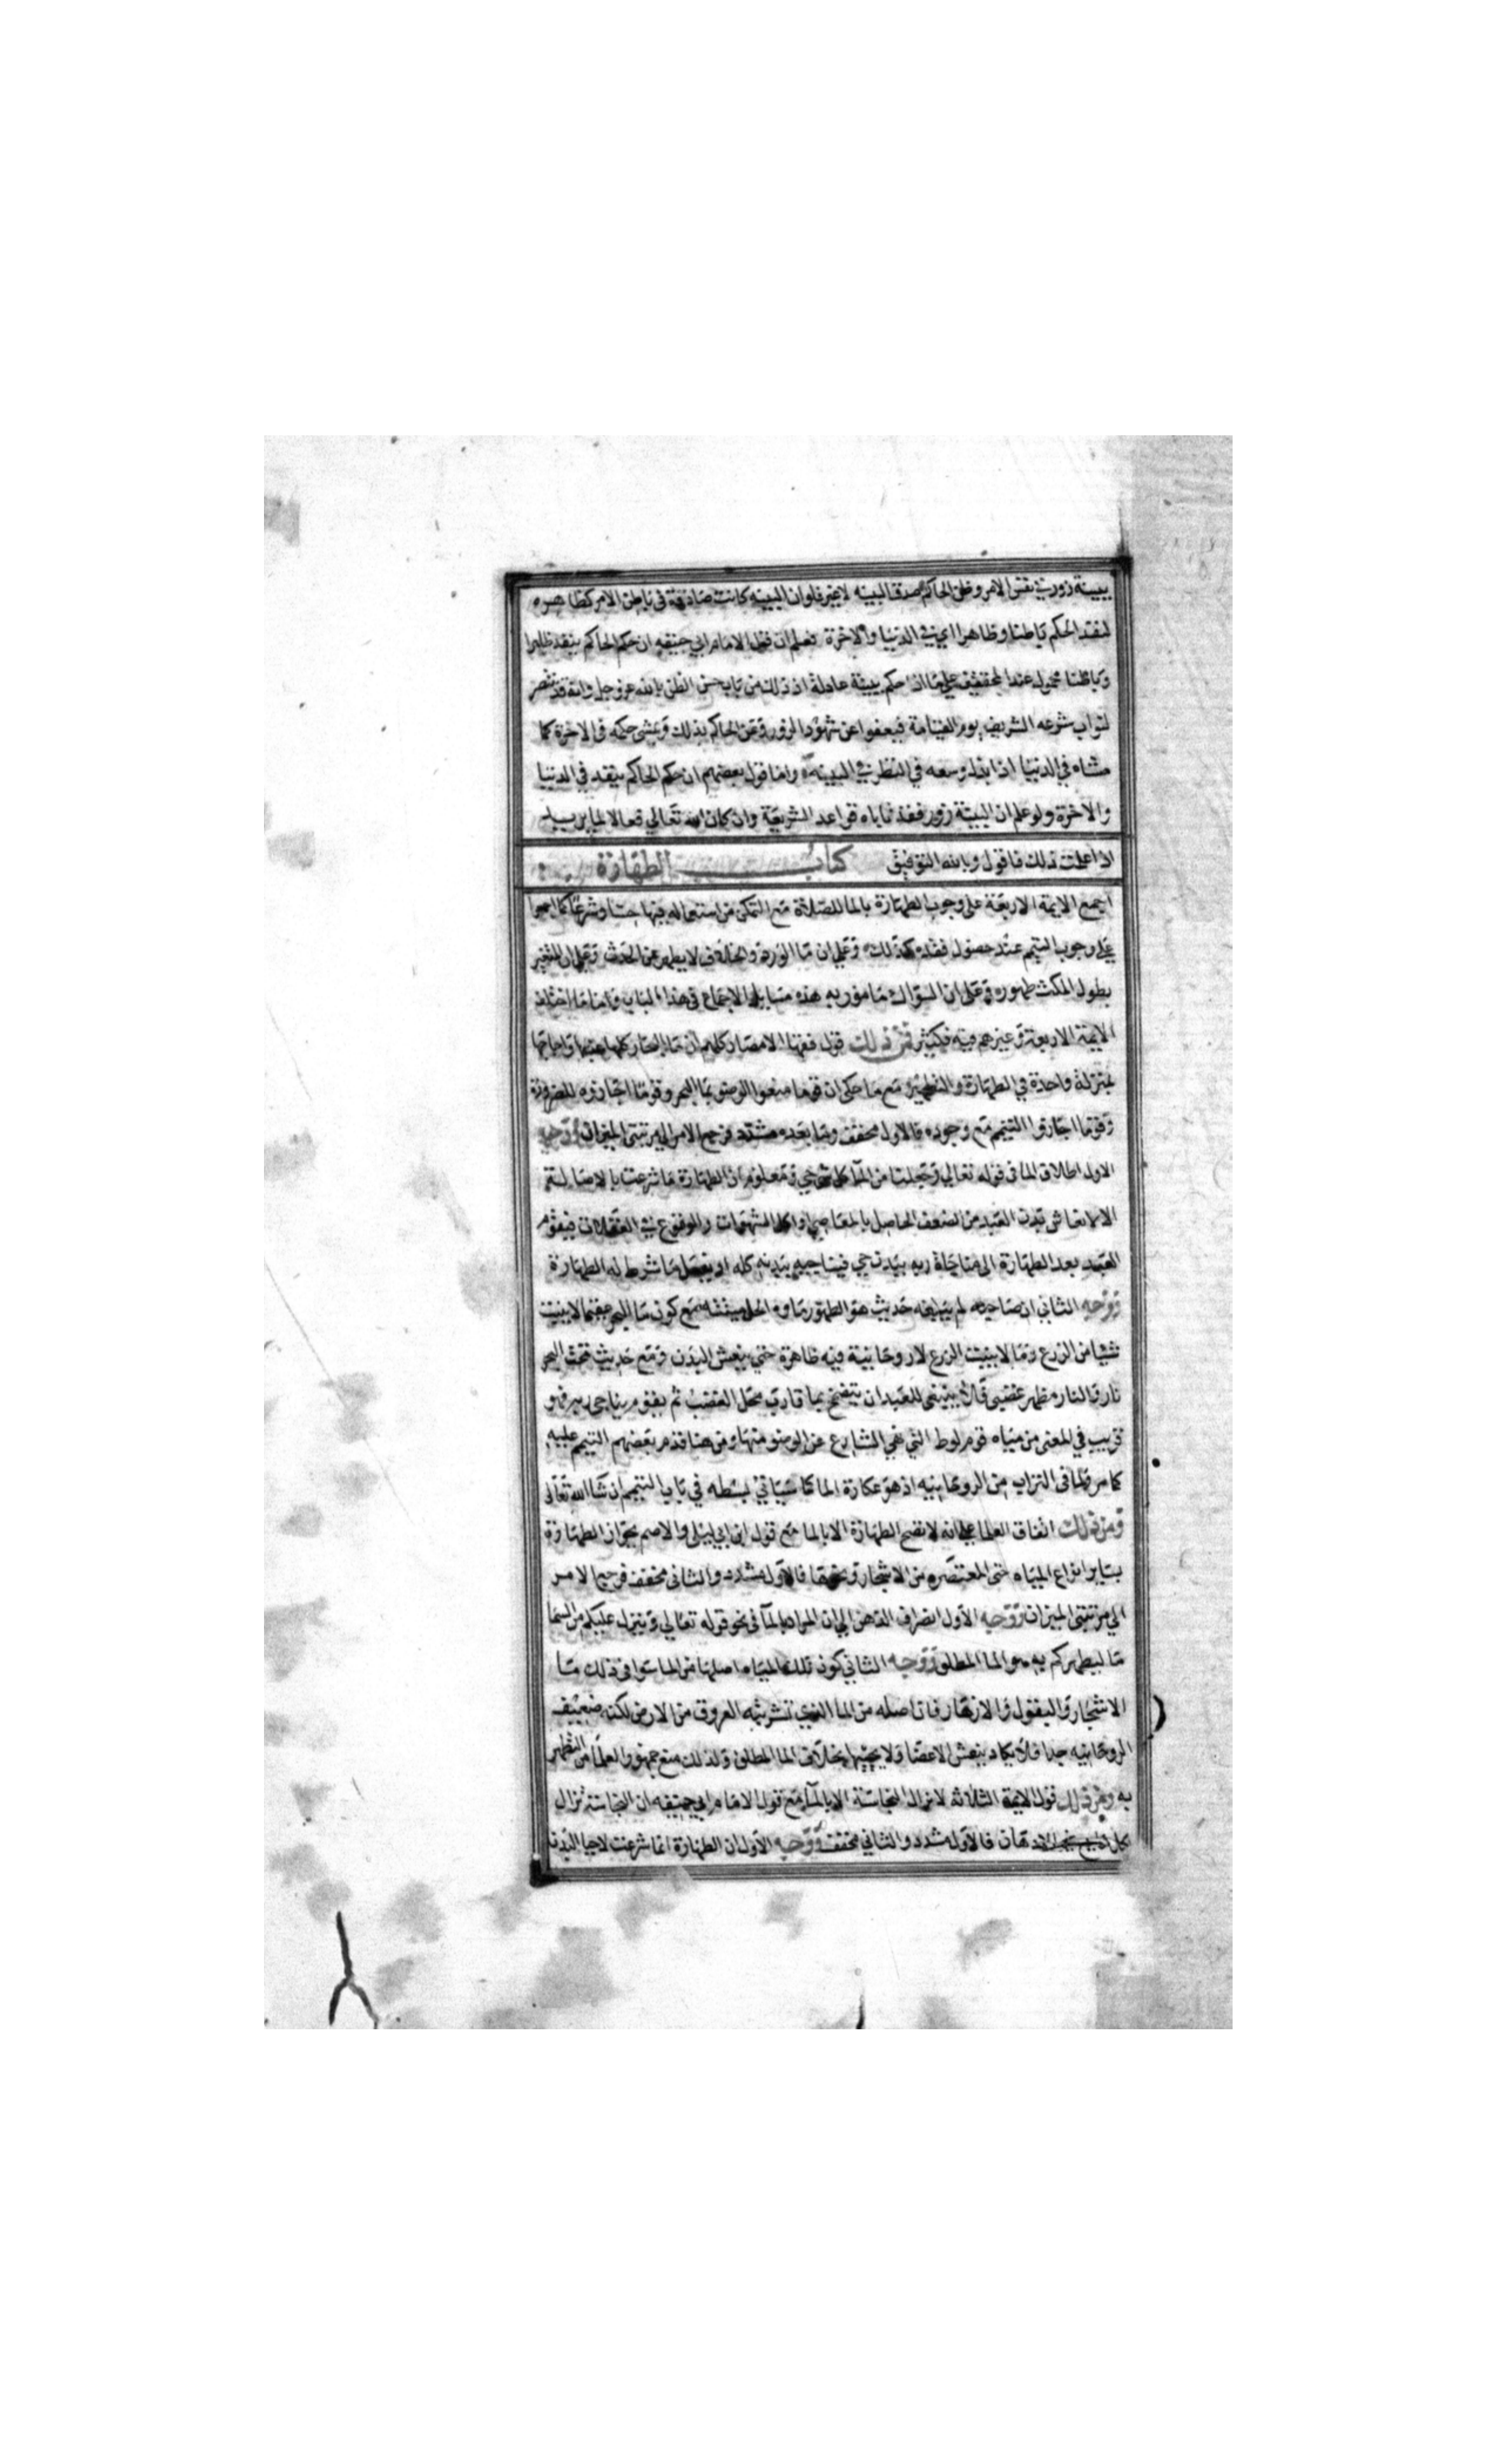 ببينة زور في نفس الامر وظن الحاكم صدق البينه لا غير فلو ان البينه كانت صادقة في باطن الامر كظاهره
لنفذ الحكم باطنا وظاهرا اي في الدنيا والاخرة فعلم ان قول الامام ابي حنيفه ان حكم الحاكم ينفذ ظاهرا
وباطنا محمول عند المحققين على ما اذا حكم ببينة عادلة اذ ذلك من باب حسن الظن بالله عز وجل وانه قد ينتصر
لنواب شرعه الشريف يوم القيامة فيعفوا عن شهود الزور وعن الحاكم بذلك ويمشى حكمه في الاخرة كما
مشاه في الدنيا اذا بذل وسعه في النظر في البينه واما قول بعضهم ان حكم الحاكم ينفذ في الدنيا
والاخرة ولو علم ان البينة زور فقد تاباه قواعد الشريعة وان كان الله تعالي فعالا لما يريد
اذا علمت ذلك فاقول وبالله التوفيق كتاب الطهارة
اجمع الايمة الاربعة على وجوب الطهارة بالما للصلاة مع التمكن من استعماله فيها حسا وشرعا كما اجمعوا
على وجوب التيمم عند حصول فقده كذلك وعلي ان ما الورد والخلاف لا يطهر عن الحدث وعلي ان المتغير
بطول المكث طهور وعلى ان السواك مامور به هذه مسايل الاجماع في هذا الباب واما ما اختلف
الايمة الاربعة وغيرهم فيه فكثير فمن ذلك قول فقها الامصار كلهم ان ما البحار كلها عذبها واجاجها
بمنزلة واحدة في الطهارة والتطهير مع ما حكى ان قوما منعوا الوضو بما البحر وقوما اجازوه للضرورة
وقوما اجازوا التيمم مع وجوده فالاول مخفف وما بعده مشدد فرجع الامر الي مرتبتي الميزان ووجه
الاول اطلاق الما في قوله تعالي وجعلنا من الما كل شي حي ومعلوم ان الطهارة ما شرعت بالاصالة
الا لانعاش بدن العبد من الضعف الحاصل بالمعاصي واكل الشهوات والوقوع في الغفلات فيقوم
العبد بعد الطهارة الى مناجاة ربه ببدن حي فيناجيه ببدنه كله اذ يفعل ما شرط له الطهارة
ووجه الثاني ان صاحبه لم يبلغه حديث هو الطهور ماوه الحل ميتته مع كون ما البحر عقيما لا ينبت
شيا من الزرع وما لا ينبت الزرع لا روحانية فيه ظاهرة حتي ينعش البدن ومع حديث تحت البحر
نار والنار مظهر غضبي فلا ينبغي للعبد ان يتضمخ بما قارب محل الغضب ثم يقوم يناجي ربه فهو
قريب في المعنى من مياه قوم لوط التي نهي الشارع عن الوضو منها ومن هنا قدم بعضهم التيمم عليه
كما مر ولما في التراب من الروحانيه اذ هو عكارة الما كما سياتي بسطه في باب التيمم ان شا الله تعالى
ومن ذلك اتفاق العلما على انه لا تصح الطهارة الا بالما مع قول ابن ابي ليلى والاصم بجواز الطهارة
بساير انواع المياه حتى المعتصره من الاشجار ونحوها فالاول مشدد والثاني مخفف فرجع الامر
الي مرتبتي الميزان ووجه الاول انصراف الذهن الي ان المراد بالما في نحو قوله تعالي وينزل عليكم من السما
ما ليطهركم به هو الما المطلق ووجه الثاني كون تلك المياه اصلها من الما سوا في ذلك ما
الاشجار والبقول والازهار فان اصله من الما الذي تشربته العروق من الارض لكنه ضعيف
الروحانيه جدا فلا يكاد ينعش الاعضا ولا يحييها بخلاف الما المطلق ولذلك منع جمهور العلما من التطهر
به ومن ذلك قول الايمة الثلاثه لا تزال النجاسة الا بالما مع قول الامام ابي حنيفه ان النجاسة تزال
بكل مايع غير الادهان فالاول مشدد والثاني مخفف ووجه الاول ان الطهارة انما شرعت لاحيا البدن